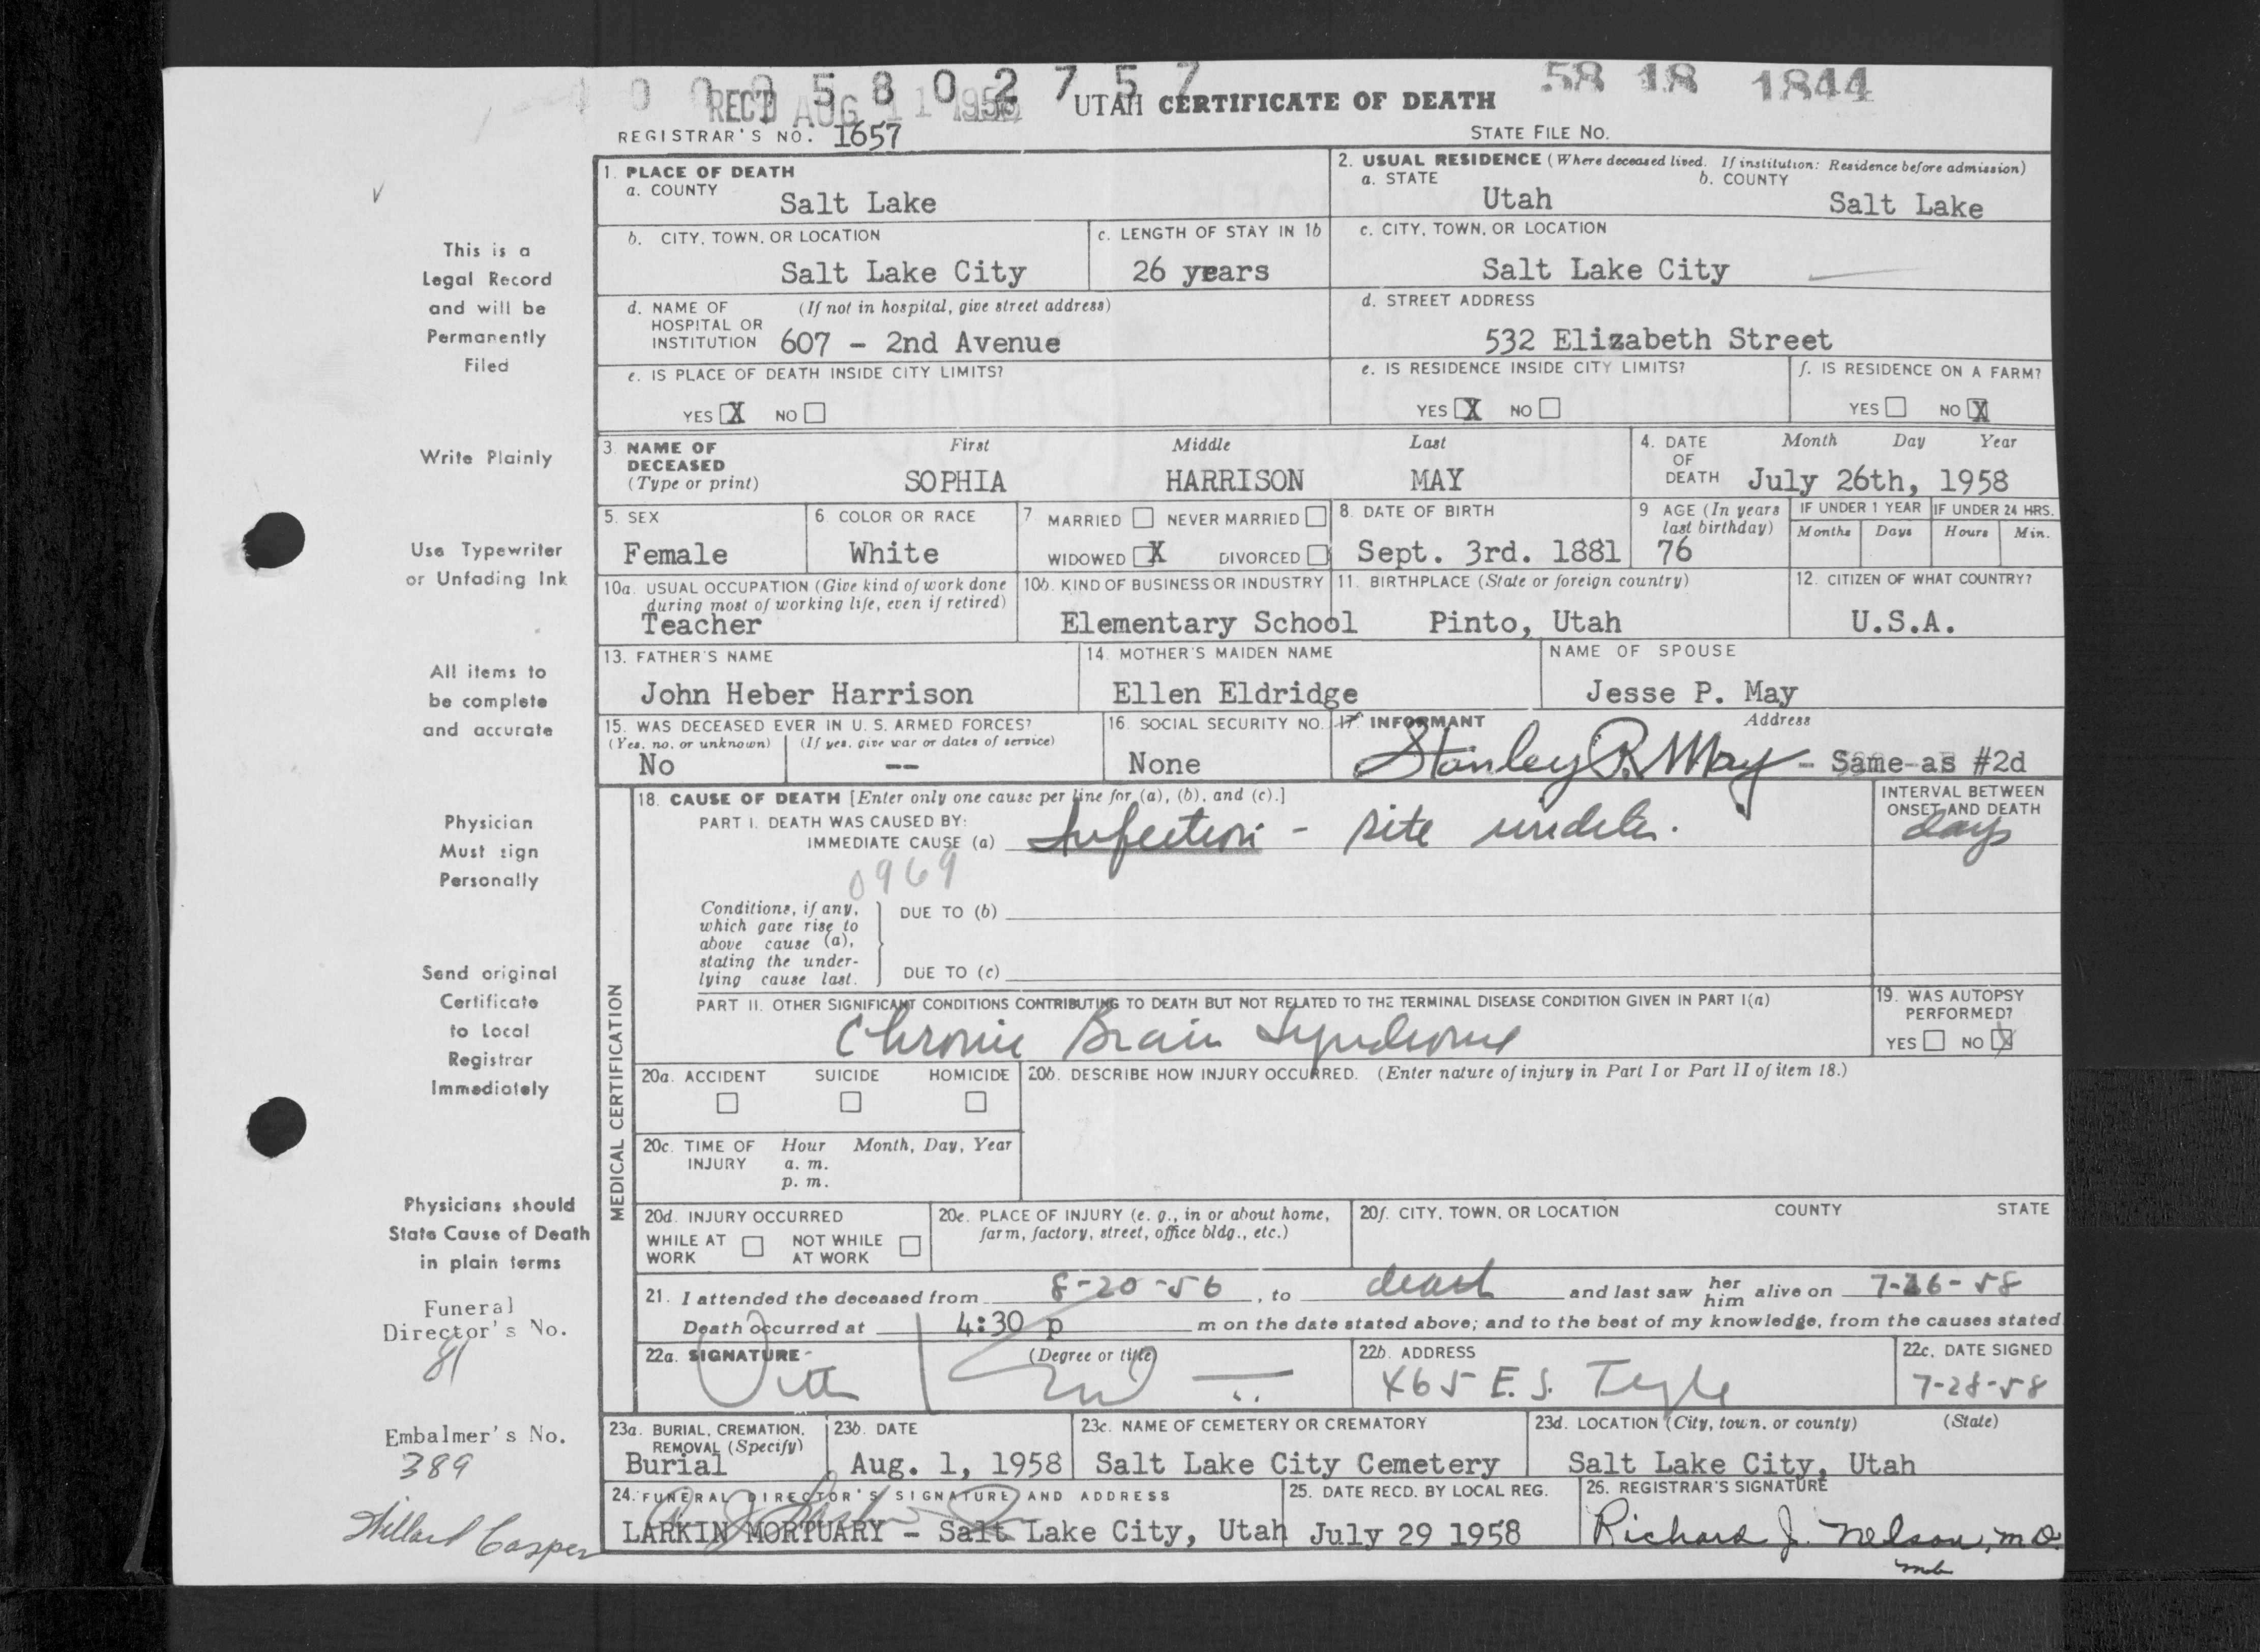 0 0 0 5 8 0 2 7 5 7
REC'D AUG 11 1958
58 18 1844
UTAH CERTIFICATE OF DEATH
REGISTRAR'S NO. 1657
STATE FILE NO.
1. PLACE OF DEATH
a. COUNTY
Salt Lake
2. USUAL RESIDENCE (Where deceased lived. If institution: Residence before admission)
a. STATE
Utah
b. COUNTY
Salt Lake
b. CITY, TOWN, OR LOCATION
Salt Lake City
c. LENGTH OF STAY IN 1b
26 years
c. CITY, TOWN, OR LOCATION
Salt Lake City
d. NAME OF HOSPITAL OR INSTITUTION
(If not in hospital, give street address)
607 - 2nd Avenue
d. STREET ADDRESS
532 Elizabeth Street
e. IS PLACE OF DEATH INSIDE CITY LIMITS?
YES X NO
e. IS RESIDENCE INSIDE CITY LIMITS?
YES X NO
f. IS RESIDENCE ON A FARM?
YES NO X
3. NAME OF DECEASED
(Type or print)
First Middle Last
SOPHIA HARRISON MAY
4. DATE OF DEATH
Month Day Year
July 26th, 1958
5. SEX
Female
6. COLOR OR RACE
White
7 MARRIED NEVER MARRIED
WIDOWED X DIVORCED
8. DATE OF BIRTH
Sept. 3rd. 1881
9 AGE (In years last birthday)
76
IF UNDER 1 YEAR
Months Days
IF UNDER 24 HRS.
Hours Min.
10a. USUAL OCCUPATION (Give kind of work done during most of working life, even if retired)
Teacher
10b. KIND OF BUSINESS OR INDUSTRY
Elementary School
11. BIRTHPLACE (State or foreign country)
Pinto, Utah
12. CITIZEN OF WHAT COUNTRY?
U.S.A.
13. FATHER'S NAME
John Heber Harrison
14. MOTHER'S MAIDEN NAME
Ellen Eldridge
NAME OF SPOUSE
Jesse P. May
15. WAS DECEASED EVER IN U. S. ARMED FORCES?
(Yes, no, or unknown) (If yes, give war or dates of service)
No --
16. SOCIAL SECURITY NO.
None
17. INFORMANT Address
Stanley P. May - Same as #2d
MEDICAL CERTIFICATION
18. CAUSE OF DEATH [Enter only one cause per line for (a), (b), and (c).]
PART I. DEATH WAS CAUSED BY:
IMMEDIATE CAUSE (a) Infection - site undeter.
INTERVAL BETWEEN ONSET AND DEATH
days
0969
Conditions, if any, which gave rise to above cause (a), stating the underlying cause last.
DUE TO (b)
DUE TO (c)
PART II. OTHER SIGNIFICANT CONDITIONS CONTRIBUTING TO DEATH BUT NOT RELATED TO THE TERMINAL DISEASE CONDITION GIVEN IN PART I(a)
Chronic Brain Syndrome
19. WAS AUTOPSY PERFORMED?
YES NO X
20a. ACCIDENT SUICIDE HOMICIDE
20b. DESCRIBE HOW INJURY OCCURRED. (Enter nature of injury in Part I or Part II of item 18.)
20c. TIME OF INJURY
Hour Month, Day, Year
a. m.
p. m.
20d. INJURY OCCURRED
WHILE AT WORK NOT WHILE AT WORK
20e. PLACE OF INJURY (e. g., in or about home, farm, factory, street, office bldg., etc.)
20f. CITY, TOWN, OR LOCATION COUNTY STATE
21. I attended the deceased from 8-20-56, to death and last saw her him alive on 7-26-58
Death occurred at 4:30 p m on the date stated above; and to the best of my knowledge, from the causes stated
22a. SIGNATURE (Degree or title)
22b. ADDRESS
465 E. S. Temple
22c. DATE SIGNED
7-28-58
23a. BURIAL, CREMATION, REMOVAL (Specify)
Burial
23b. DATE
Aug. 1, 1958
23c. NAME OF CEMETERY OR CREMATORY
Salt Lake City Cemetery
23d. LOCATION (City, town, or county) (State)
Salt Lake City, Utah
24. FUNERAL DIRECTOR'S SIGNATURE AND ADDRESS
LARKIN MORTUARY - Salt Lake City, Utah
25. DATE RECD. BY LOCAL REG.
July 29 1958
26. REGISTRAR'S SIGNATURE
Richard J. Nelson, M.D.
mb
This is a
Legal Record
and will be
Permanently
Filed
Write Plainly
Use Typewriter
or Unfading Ink
All items to
be complete
and accurate
Physician
Must sign
Personally
Send original
Certificate
to Local
Registrar
Immediately
Physicians should
State Cause of Death
in plain terms
Funeral
Director's No.
81
Embalmer's No.
389
Willard Casper